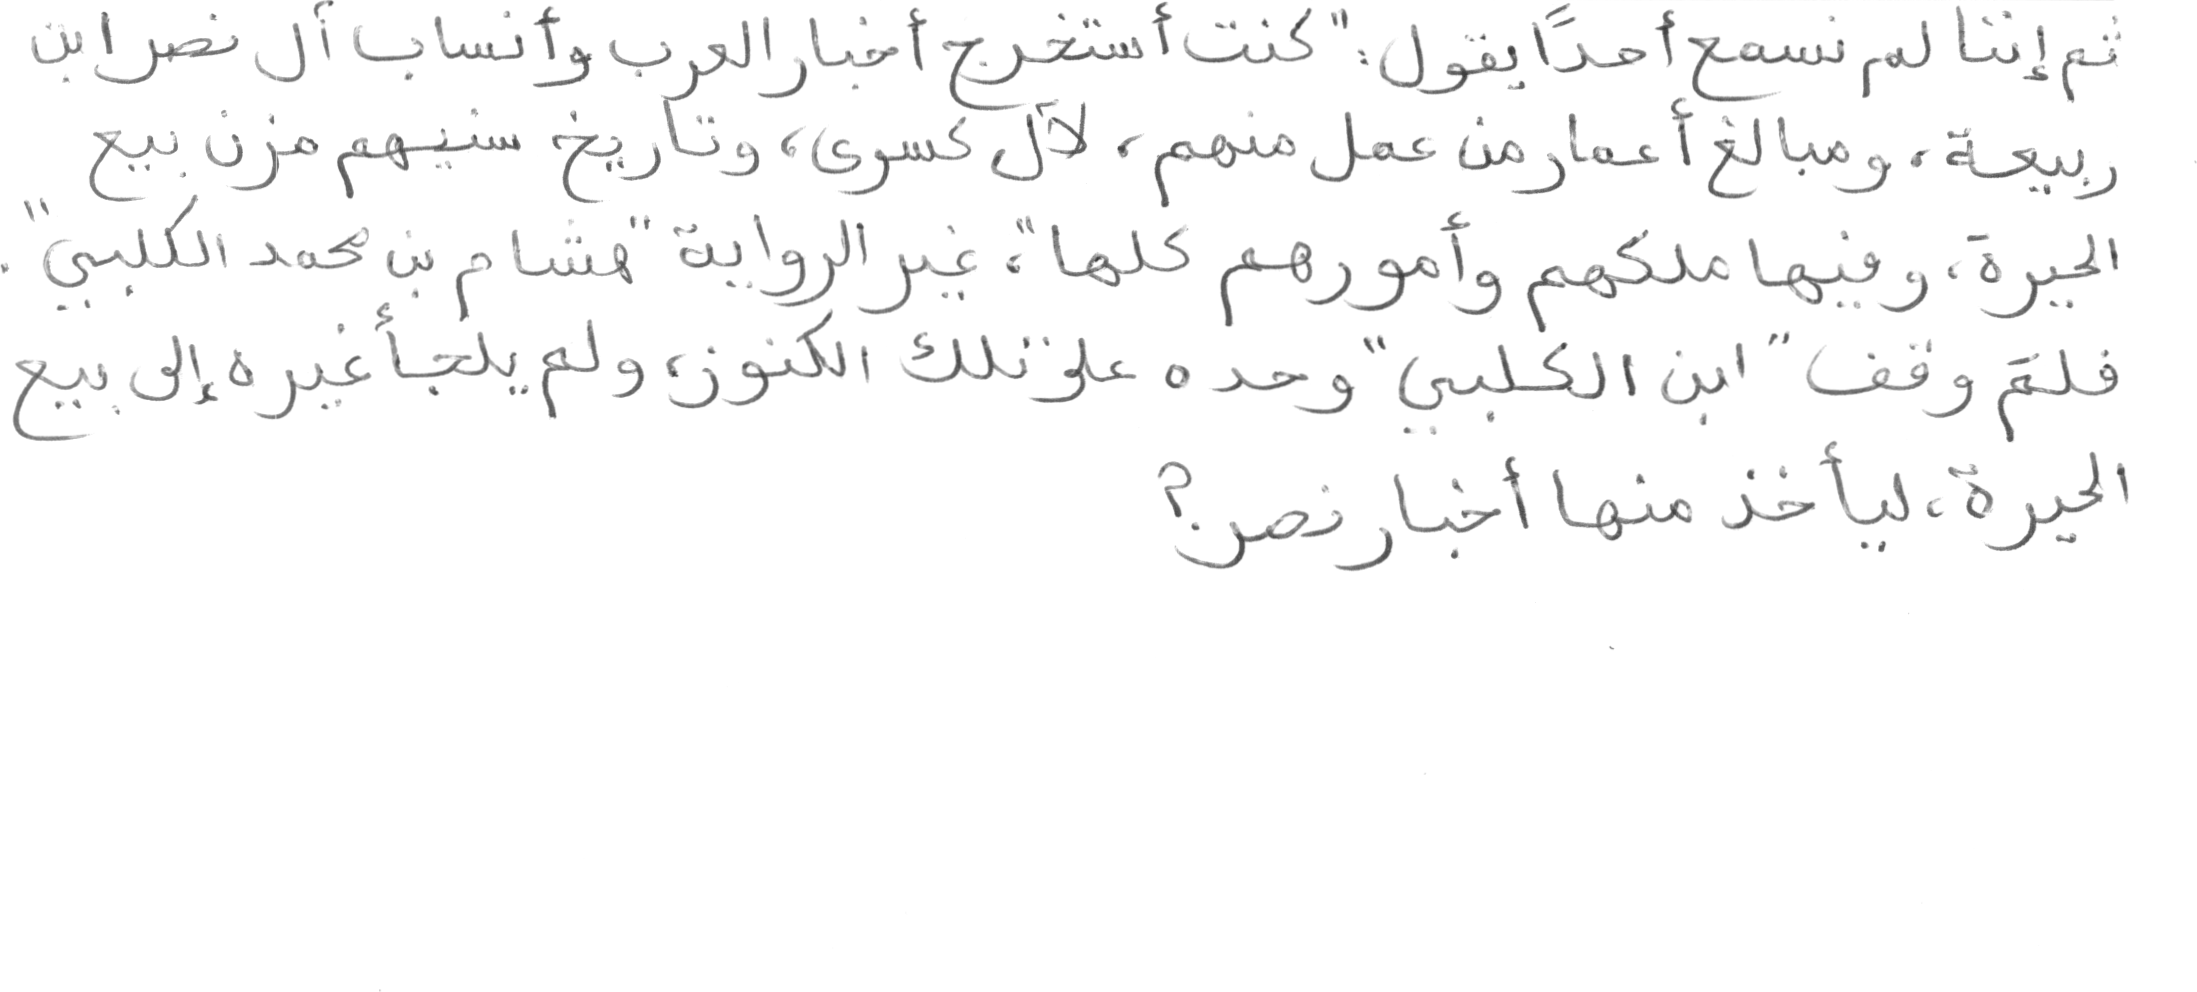 ثم إننا لم نسمع أحدًا يقول: "كنت أستخرج أخبار العرب وأنساب آل نصر ابن
ربيعة، ومبالغ أعمار من عمل منهم، لآل كسرى، وتاريخ سنيهم مزن بيع
الحيرة، وفيها ملكهم وأمورهم كلها"، غير الرواية "هشام بن محمد الكلبي".
فلمَ وقف "ابن الكلبي" وحده على تلك الكنوز، ولم يلجأ غيره إلى بيع
الحيرة، ليأخذ منها أخبار نصر؟